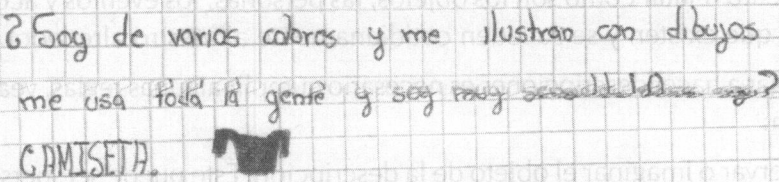 ¿Soy de varios colores y me ilustran con dibujos
me usa toda la gente y soy muy ?
CAMISETA.